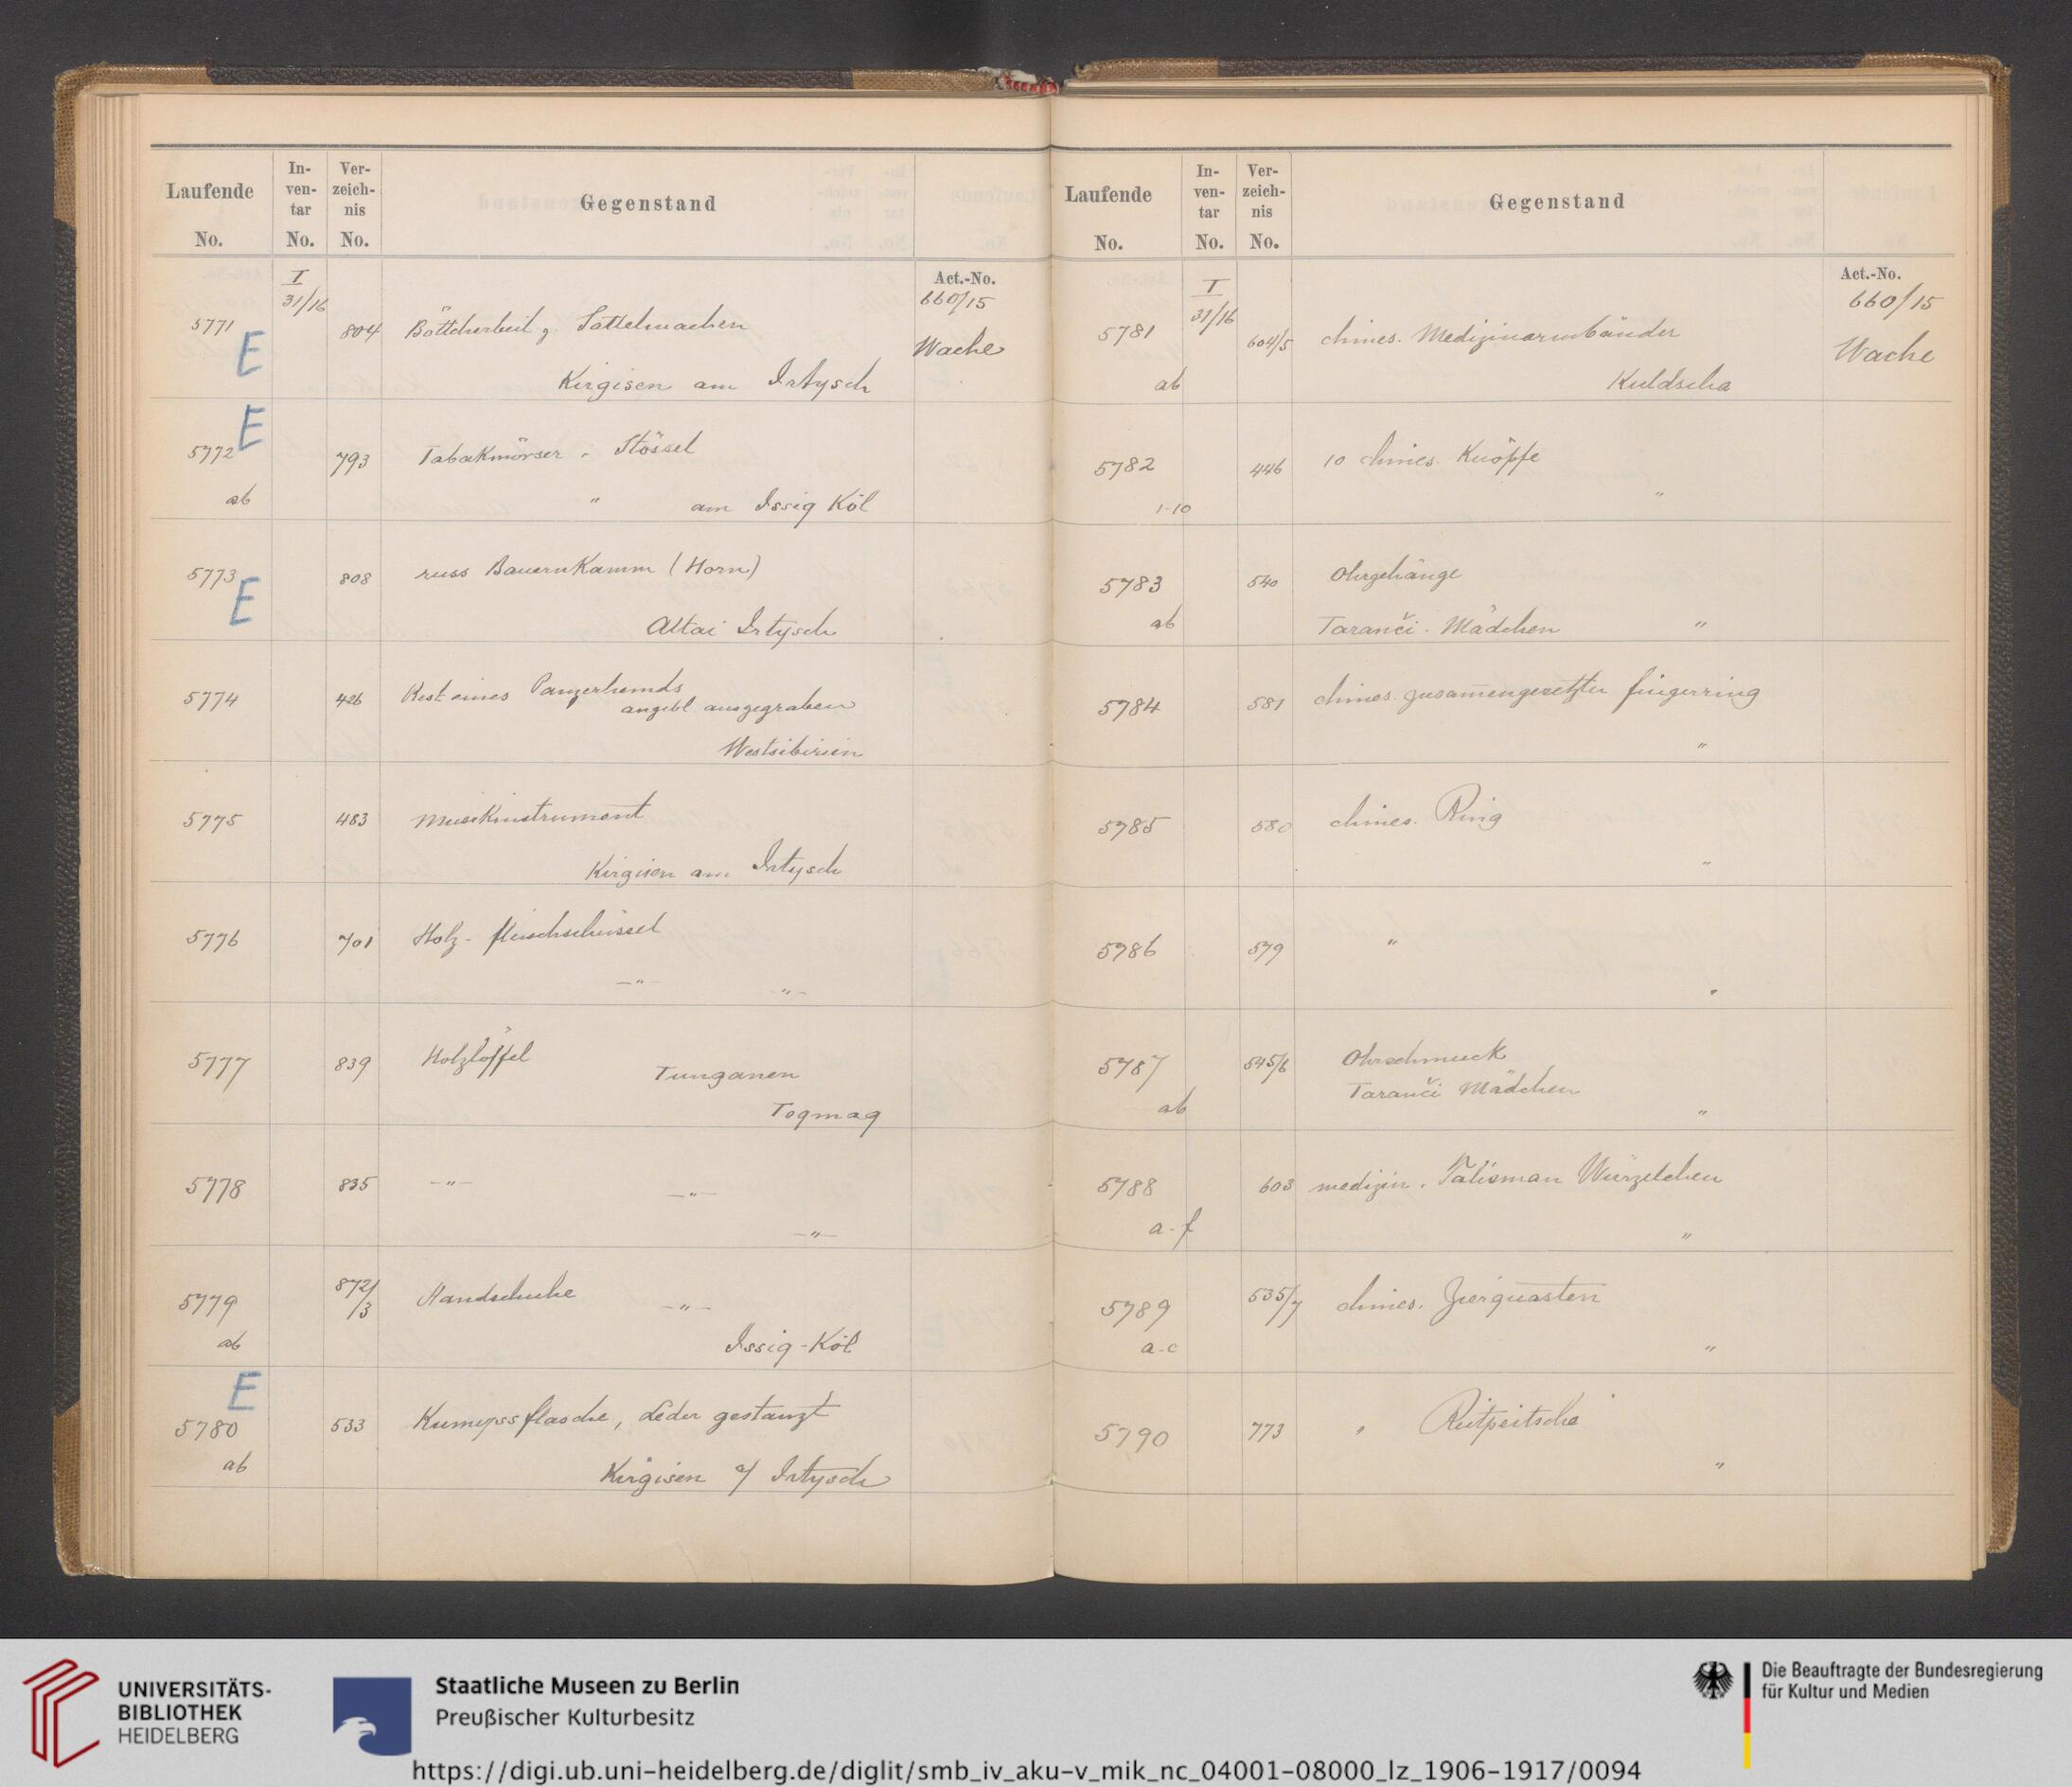 Laufende No.
In-ven-tar No.
Ver-zeich-nis No.
Gegenstand
Act.-No.
I 31/16
660/15
Wache
5771 E 804 Böttcherbeil z. Sattelmachen
Kirgisen am Irtysch
E
5772 793 Tabakmörser Stössel
ab " am Issig Köl
5773 E 808 russ Bauernkamm (Horn)
Altai Irtysch
5774 426 Rest eines Panzerhemds
angebl ausgegraben
Westsibirien
5775 483 Musikinstrument
Kirgisen am Irtysch
5776 701 Holz-fleischschüssel
–"– –"–
5777 839 Holzlöffel
Tunganen
Toqmaq
5778 835 –"– –"–
–"–
5779 872/3 Handschuhe –"–
ab Issig-Köl
E
5780 533 Kumyssflasche, Leder gestanzt
ab Kirgisen a/ Irtysch
Laufende No.
In-ven-tar No.
Ver-zeich-nis No.
Gegenstand
Act.-No.
I 31/16
660/15
Wache
5781 604/5 chines. Medizinarmbänder
ab Kuldscha
5782 446 10 chines. Knöpfe
1-10 "
5783 540 Ohrgehänge
ab Taranči-Mädchen "
5784 581 chines. zusam̅engesetzter fingerring
"
5785 580 chines. Ring
"
5786 579 "
"
5787 545/6 Ohrschmuck
Taranči Mädchen
ab "
5788 603 medizin. Talisman Würzelchen
a-f "
5789 535/7 chines. Zierquasten
a-c "
5790 773 " Reitpeitsche
"
UNIVERSITÄTS-
BIBLIOTHEK
HEIDELBERG
Staatliche Museen zu Berlin
Preußischer Kulturbesitz
Die Beauftragte der Bundesregierung
für Kultur und Medien
https://digi.ub.uni-heidelberg.de/diglit/smb_iv_aku-v_mik_nc_04001-08000_lz_1906-1917/0094